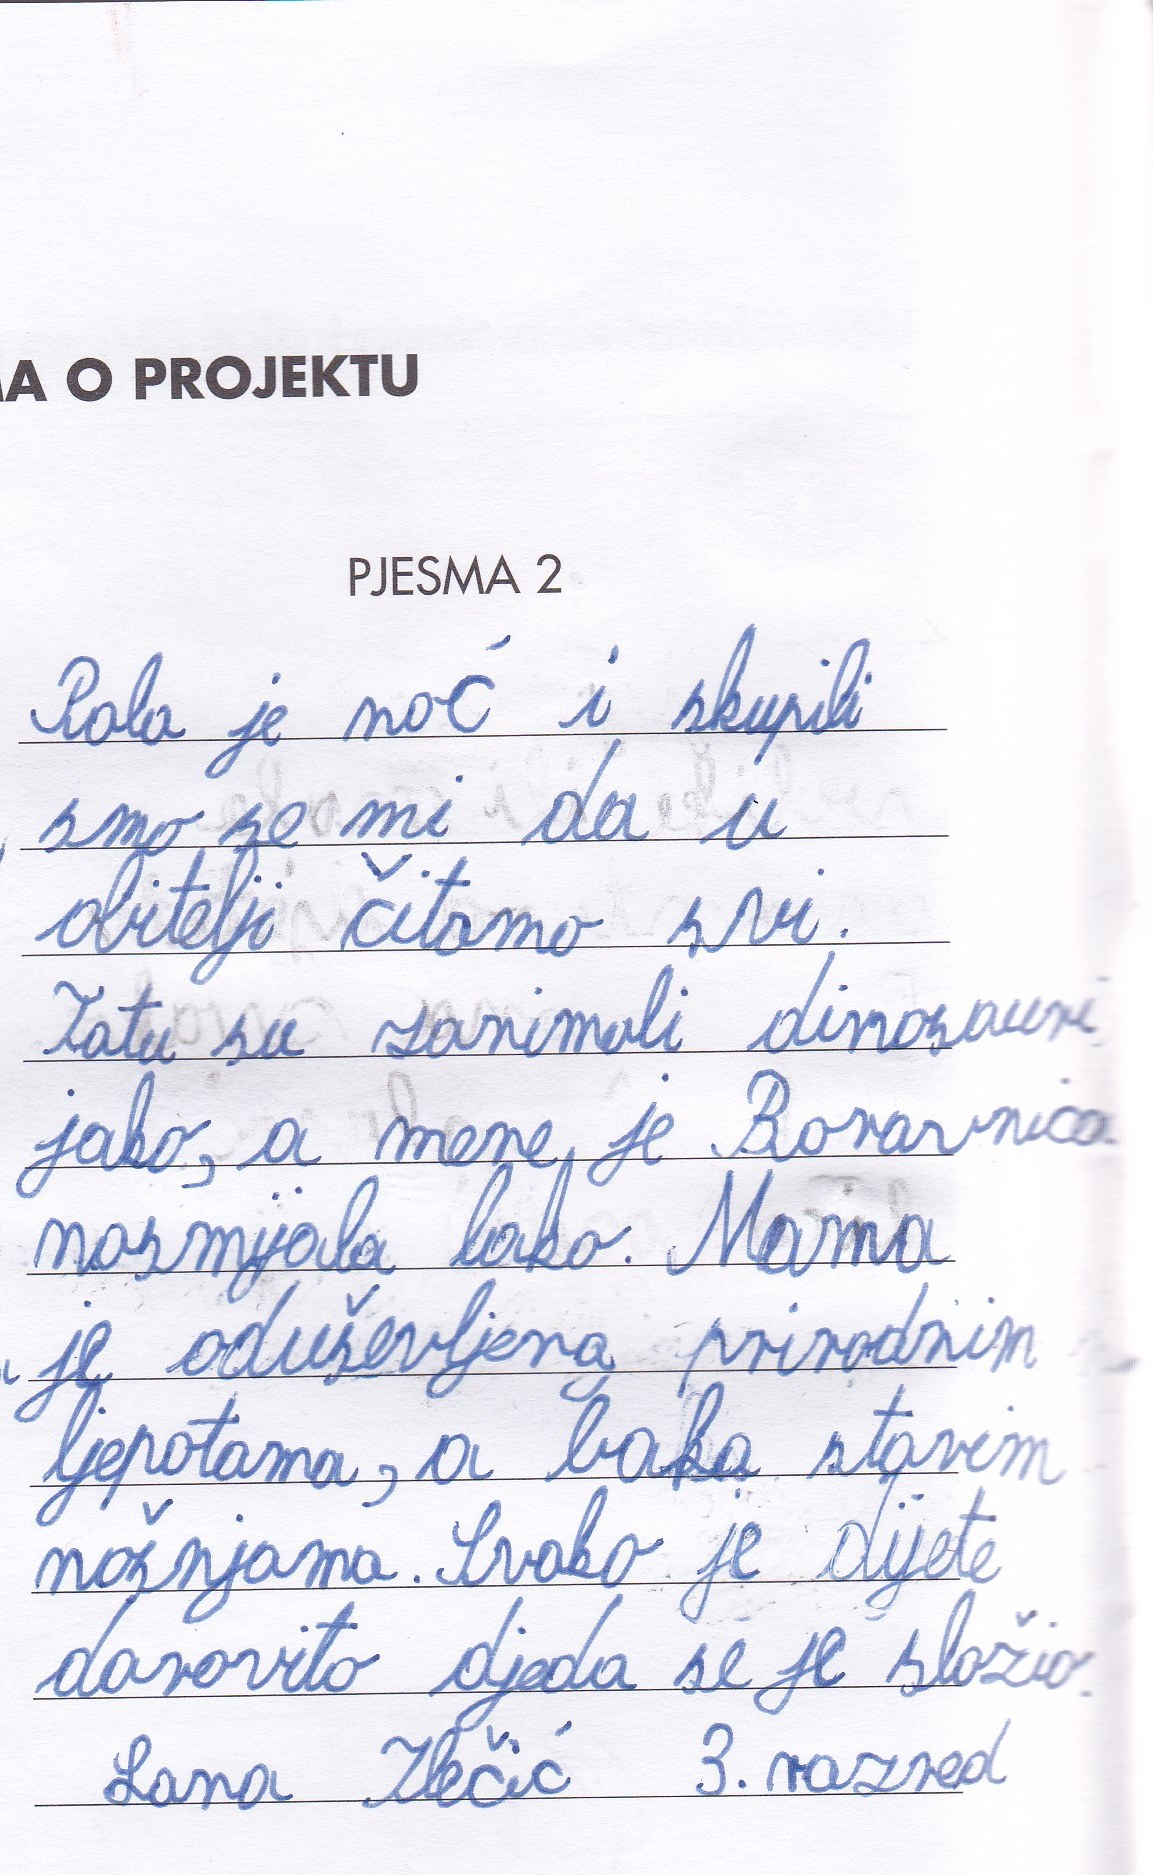 MA O PROJEKTU
PJESMA 2
Pala je noć i skupili
smo se mi da u
obitelji čitamo svi.
Tatu su zanimali dinosauri
jako, a mene je Borovnica
nasmijala lako. Mama
je oduševljena prirodnim
ljepotama, a baka starim
nošnjama. Svako je dijete
darovito djeda se je složio.
Lana 3. razred